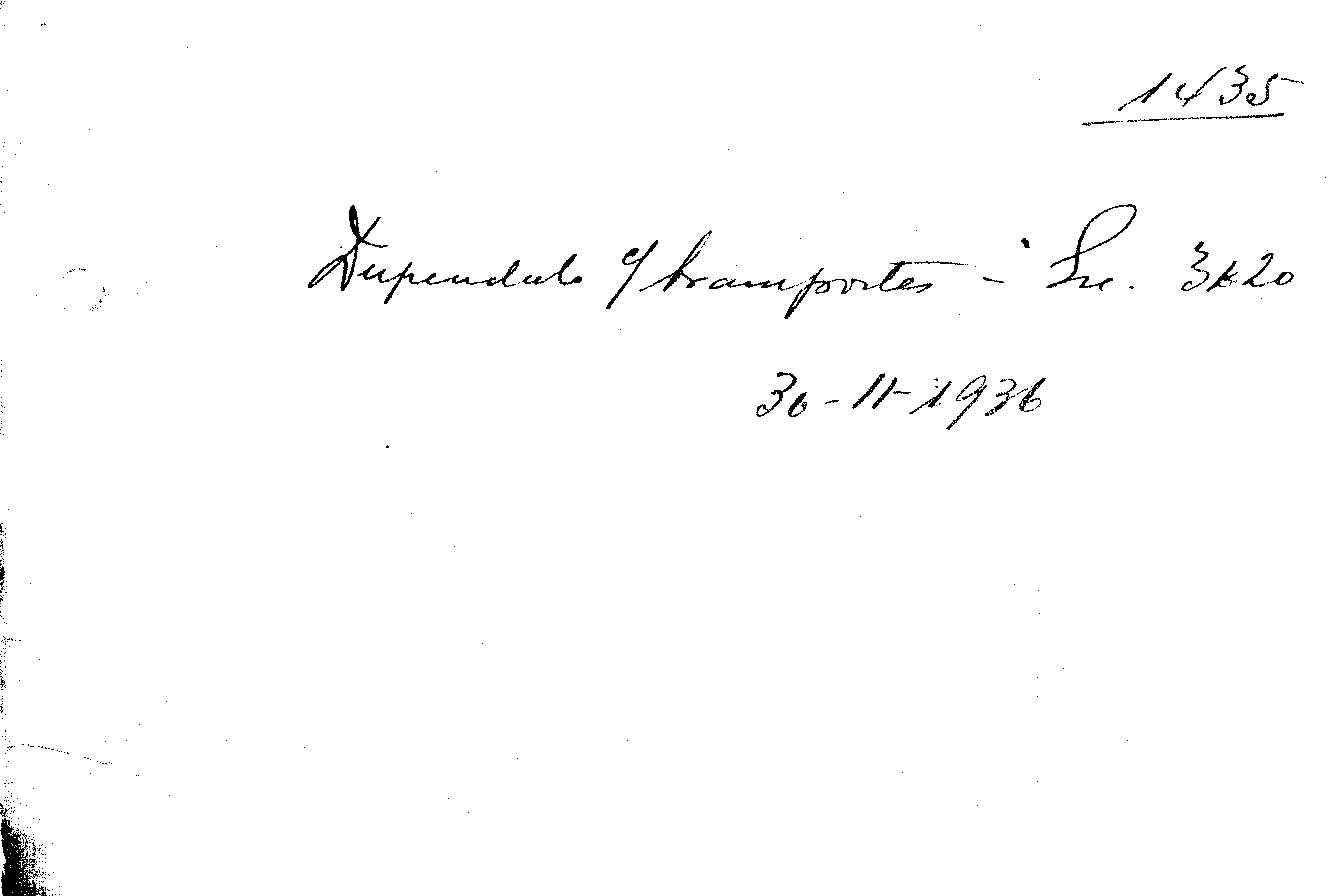 1435
Dispendido c/ transportes - Esc. 3$20
30-11-1936